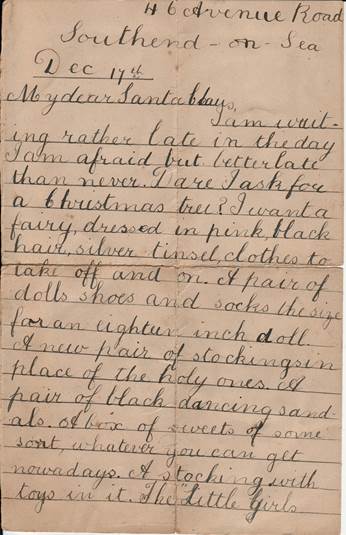 46 Avenue Road
Southend-on-Sea
Dec 17th
My dear Santa Claus,
I am writ-
ing rather late in the day
I am afraid but better late
than never. Dare I ask for
a Christmas tree? I want a
fairy, dressed in pink, black
hair, silver tinsel, clothes to
take off and on. A pair of
dolls shoes and socks the size
for an eighteen inch doll.
A new pair of stockings in
place of the holy ones. A
pair of black dancing sand-
als. A box of sweets of some
sort, whatever you can get
nowadays. A stocking with
toys in it. The "Little Girls